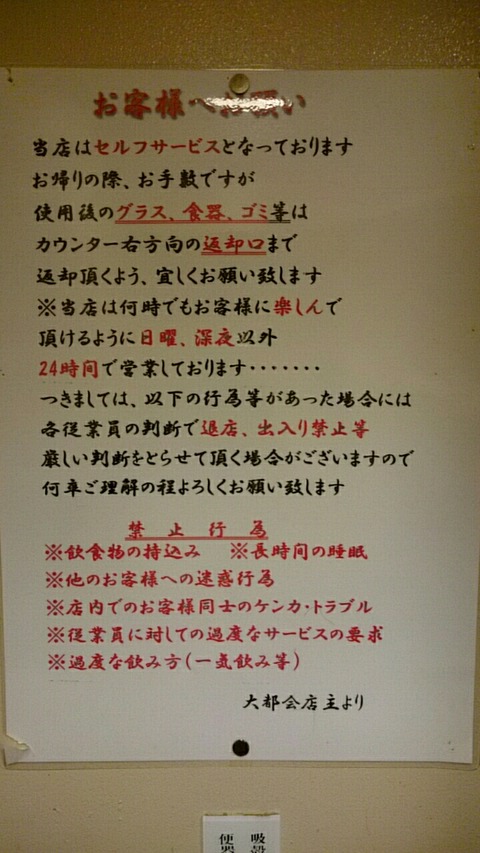 お客様へお願い
当店はセルフサービスとなっております
お帰りの際、お手数ですが
使用後のグラス、食器、ゴミ等は
カウンター右方向の返却口まで
返却頂くよう、宜しくお願い致します
※当店は何時でもお客様に楽しんで
頂けるように日曜、深夜以外
24時間で営業しております・・・・・・・
つきましては、以下の行為等があった場合には
各従業員の判断で退店、出入り禁止等
厳しい判断をとらせて頂く場合がございますので
何卒ご理解の程よろしくお願い致します
禁止行為
※飲食物の持込み ※長時間の睡眠
※他のお客様への迷惑行為
※店内でのお客様同士のケンカ・トラブル
※従業員に対しての過度なサービスの要求
※過度な飲み方(一気飲み等)
大都会店主より
吸殻
便器